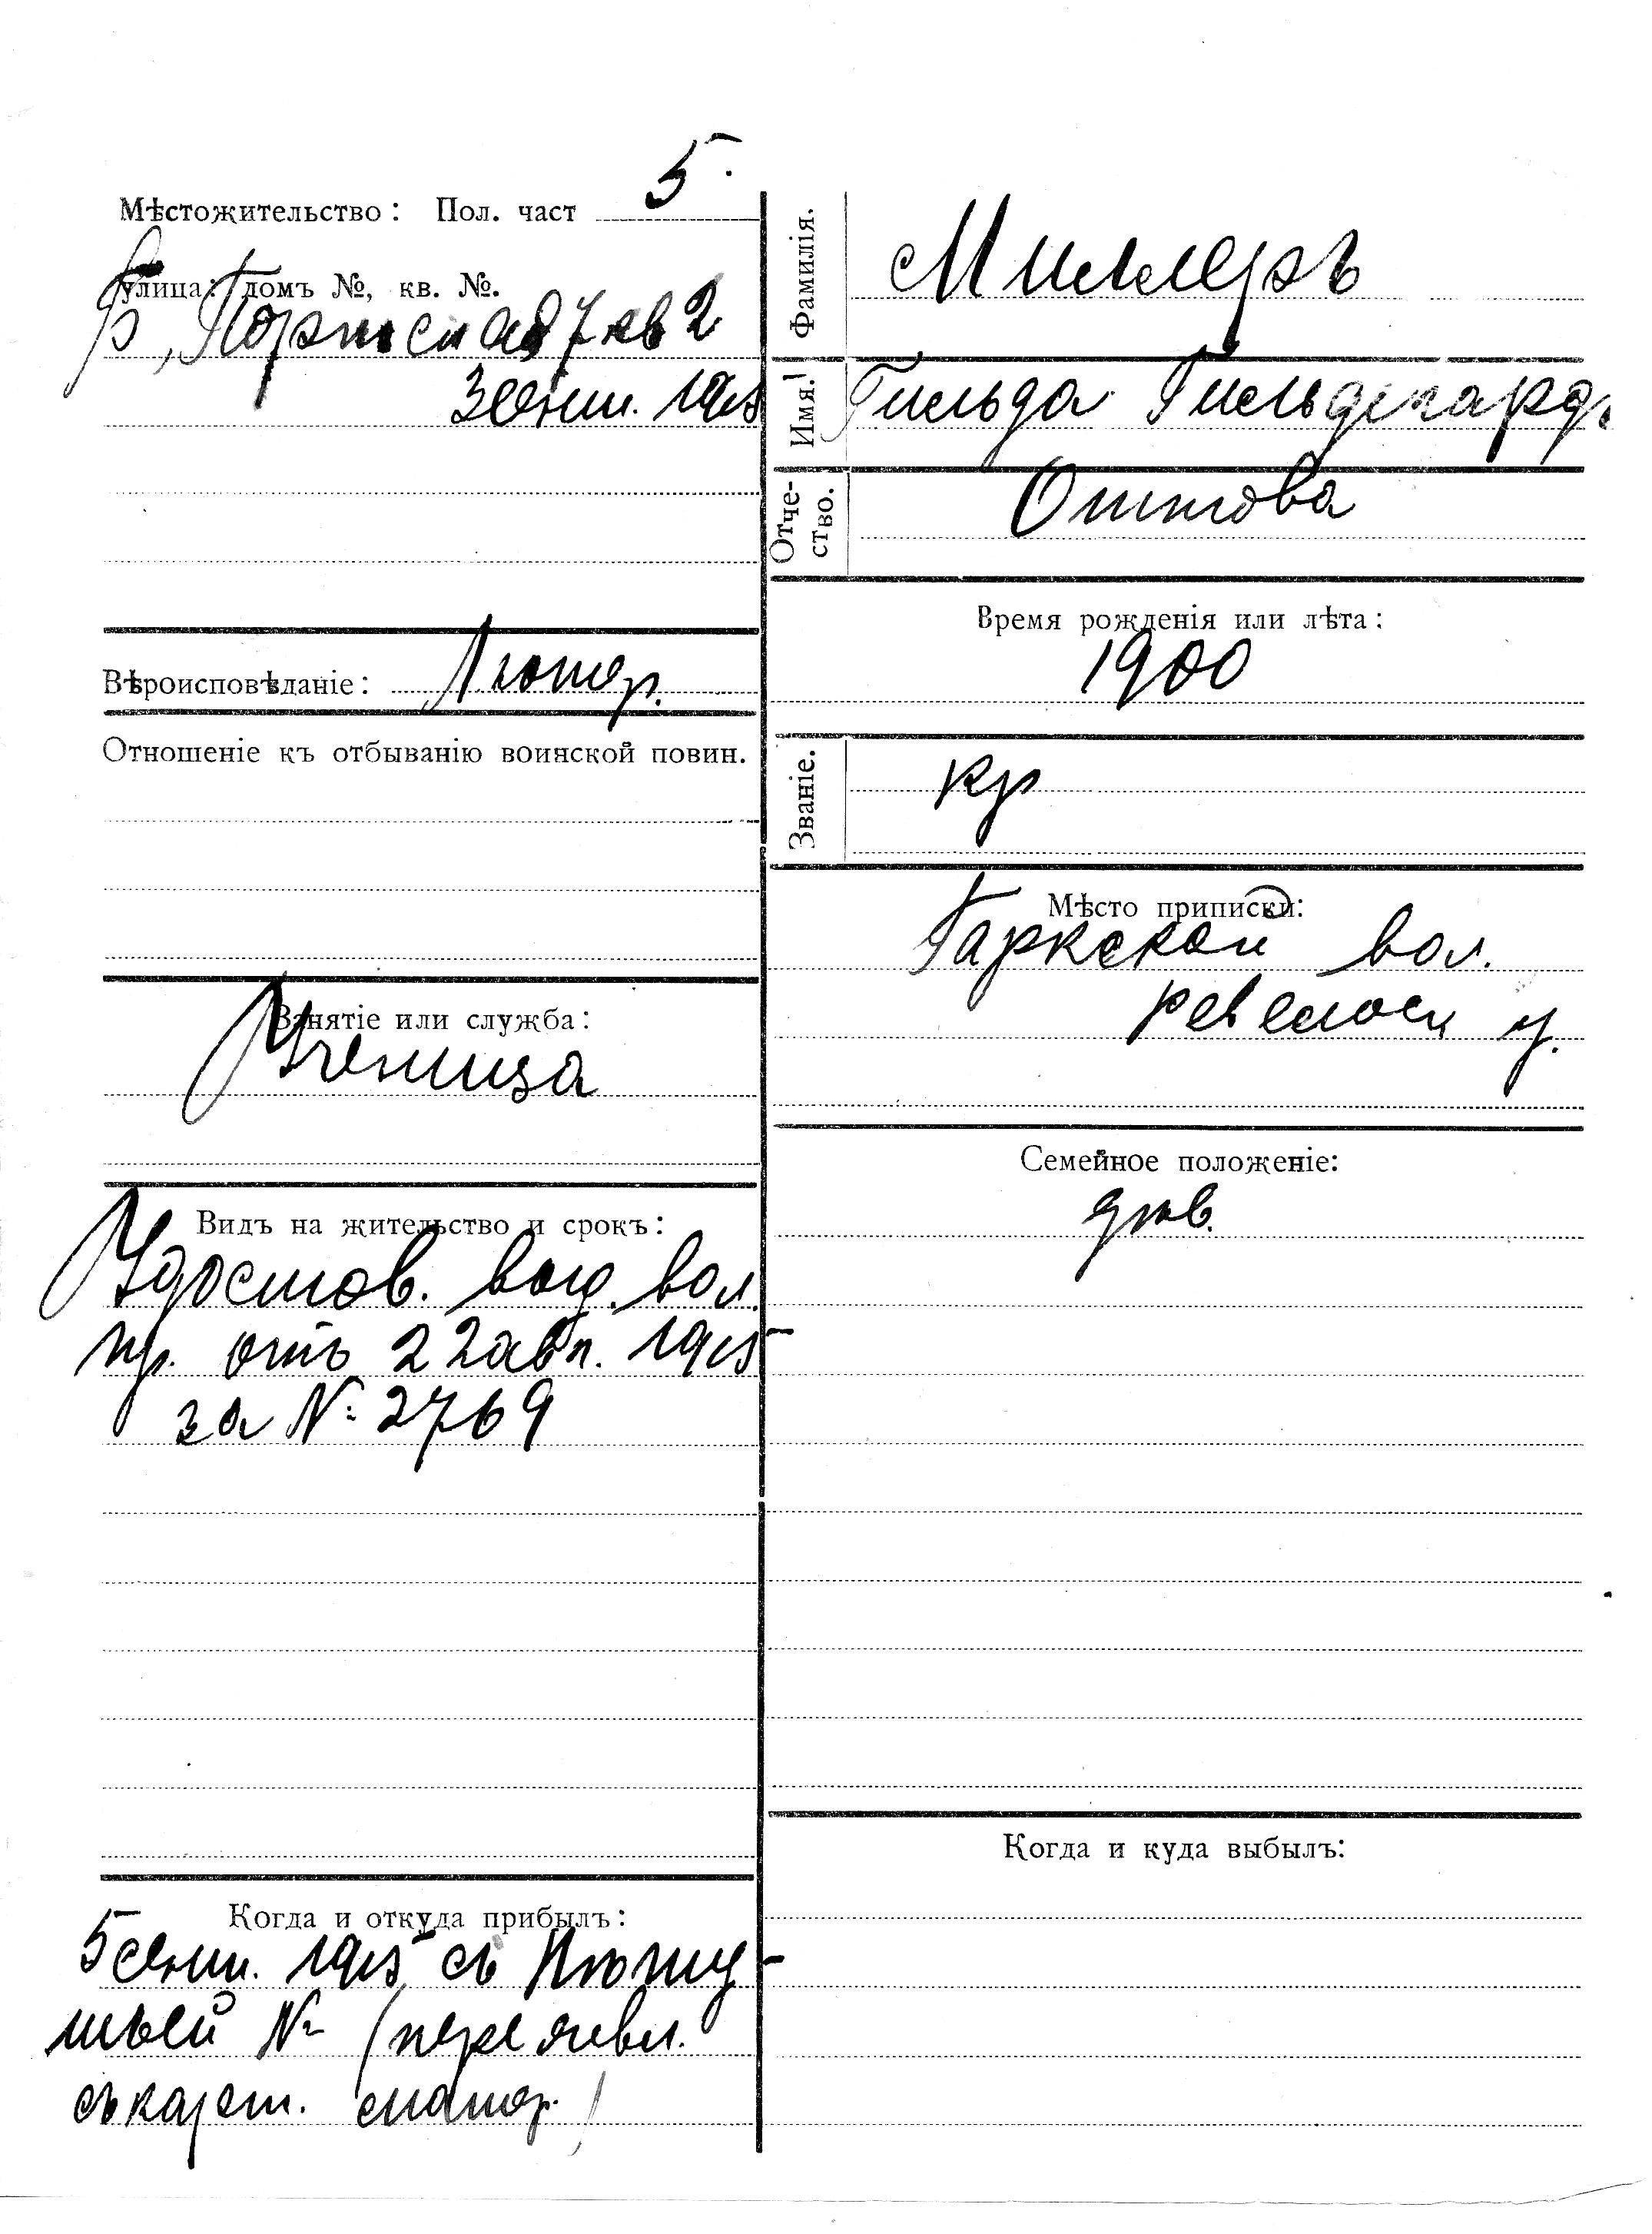 Мѣстожительство: Пол. част 5.
Улица: домъ №, кв. №.
Портсная 7 кв 2
3 сент. 1915
Вѣроисповѣданіе: Лютер.
Отношеніе къ отбыванію воинской повин.
Занятіе или служба:
Ученица
Видъ на жительство и срокъ:
Удостов. выд. вол.
пр. отъ 22 авг. 1915
за № 2769
Когда и откуда прибылъ:
5 сент. 1915 съ
№ (переявл.
съ карт. матер.)
Фамилія. Миллеръ
Имя. Гильда Гильдегардъ
Отче-
ство. Оттова
Время рожденія или лѣта:
1900
Званіе. кр
Мѣсто приписки:
Гаркской вол.
Ревельск у.
Семейное положеніе:
дѣв.
Когда и куда выбылъ: